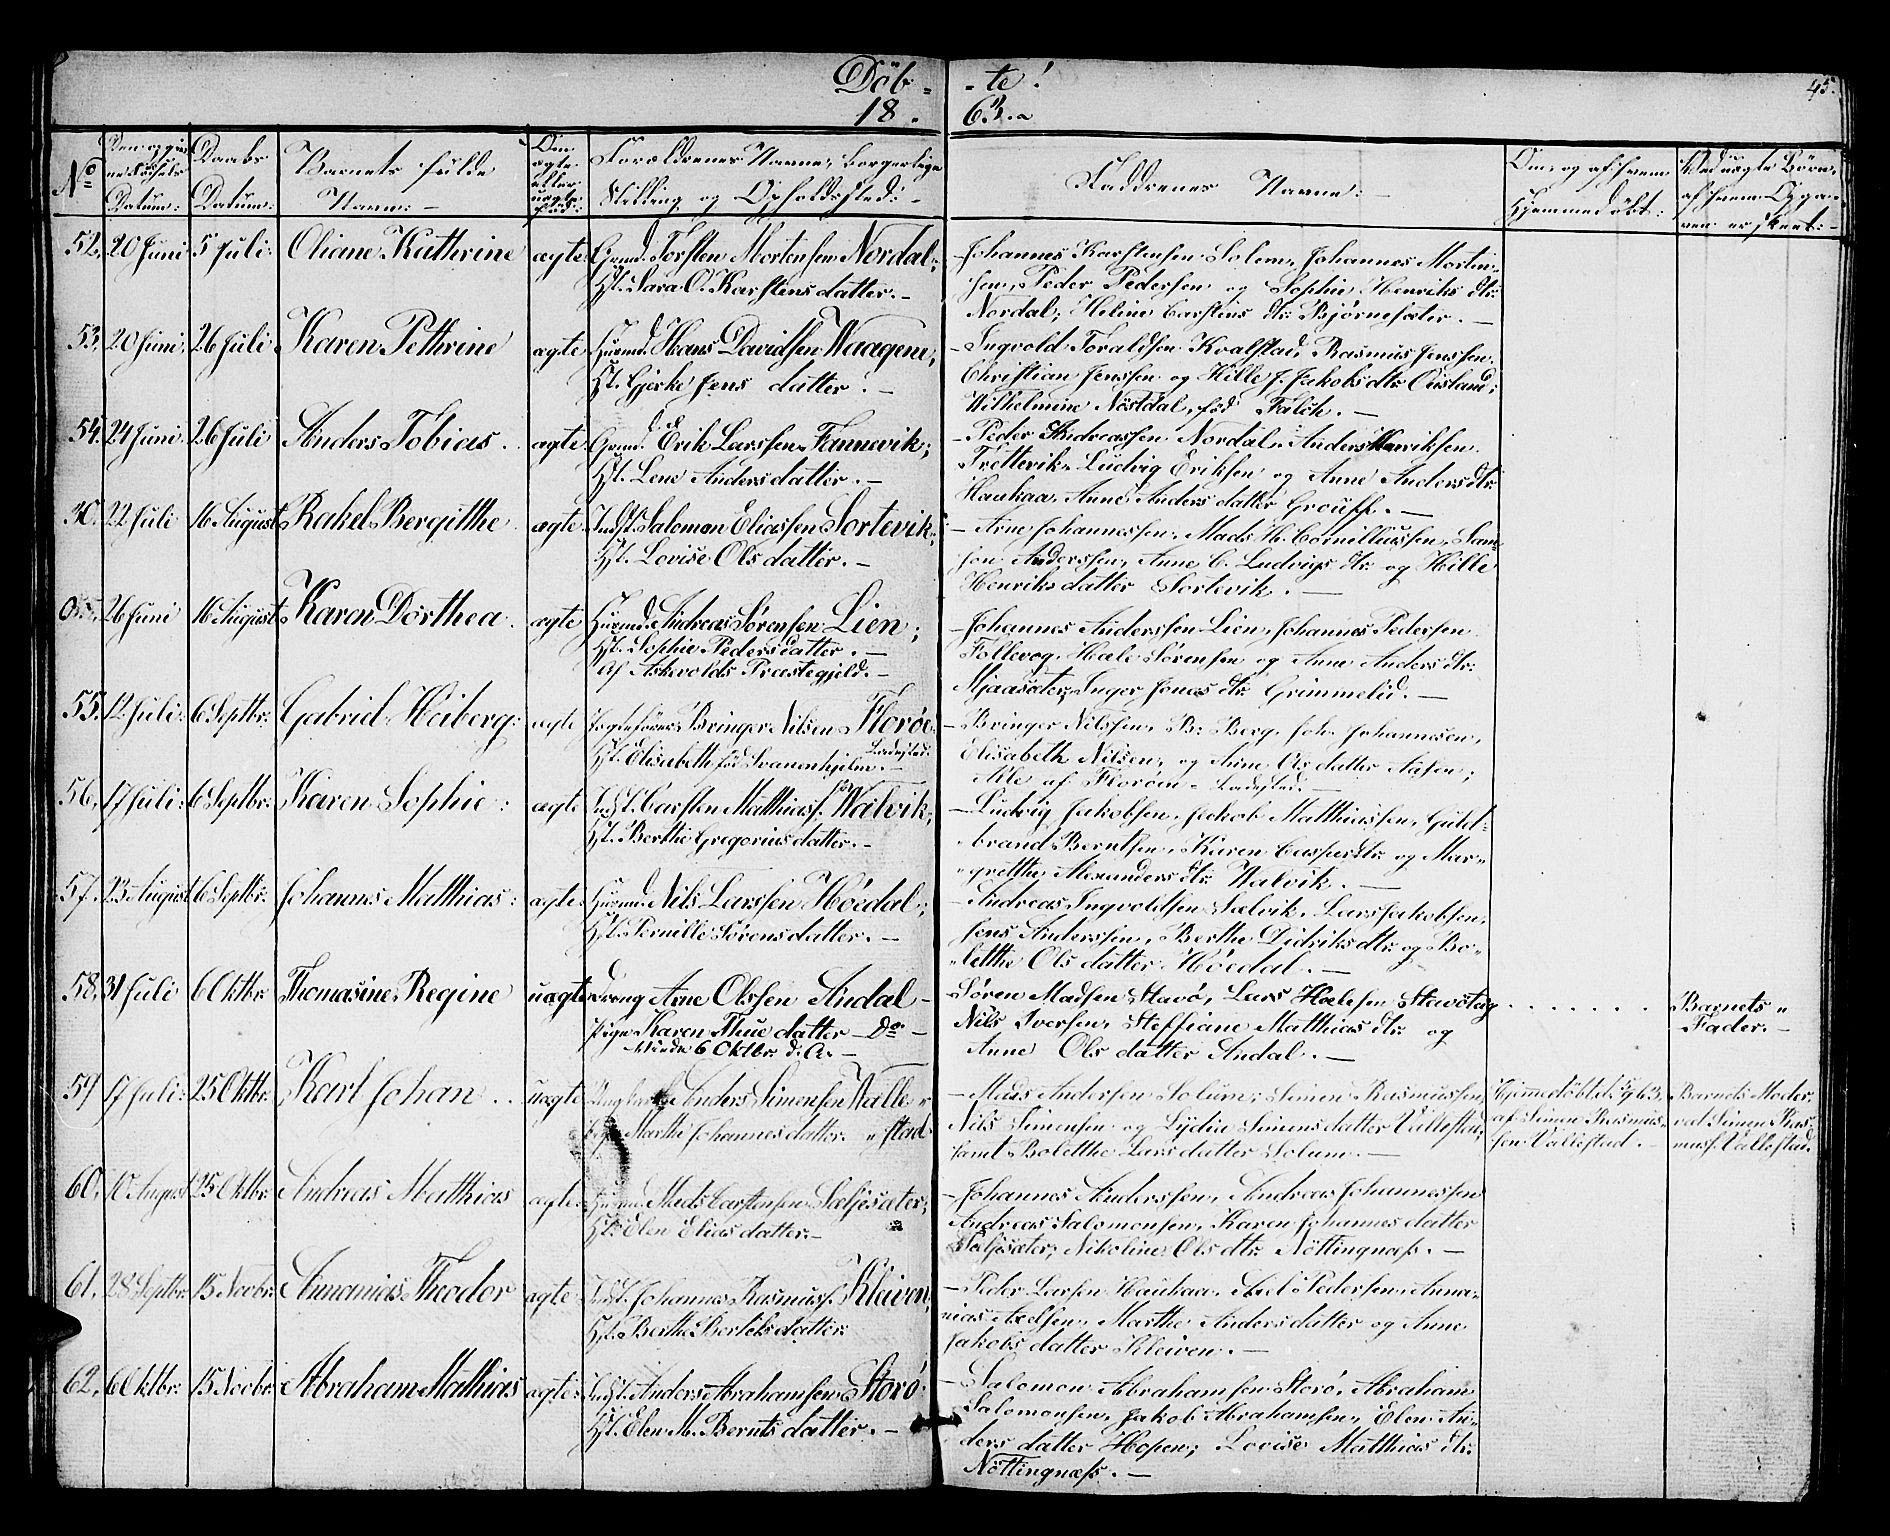 Döb- -te!
45.
18. 63.
No
Datum:
Daabs
Datum:
Barnets fülde
Navn:-
Om
ægte
eller
uægte
fød:
Forældrenes Navne, borgerlige
Stilling og Opholdssted:-
Faddrenes Navne:-
Om, og af hvem
Hjemmedöbt:
Ved uægte Börn,
af hvem Opga-
ven er skeet:-
52. 20 Juni 5 Juli: Oliane Kathrine ægte Grmd. Torsten Mortensen Nordal;
Hst. Sara O. Karstensdatter.-
Johannes Karstensen Solem, Johannes Mortin-
sen, Peder Pedersen og Sophie Henriks dtr.
Nordal; Heline Carstens dtr. Bjørnesæter.-
53. 20 Juni. 26 Juli Karen Pethrine ægte Huusmd. Hans Davidsen Waagene,
Hst. Gjørke Jens datter.-
Ingvold Toraldsen Kvalstad, Rasmus Jenssen
Christian Jenssen og Hille J. Jakobsdtr.
Wilhelmine Nöstdal, fød Falch.-
54. 24 Juni. 26 Juli Anders Tobias. ægte Grmd. Erik Larssen Fannevik;
Hst. Lene Andersdatter.-
Peder Andreassen Nordal, Anders Henriksen
Trettevik, Ludvig Eriksen og Anne Andersdtr.
Haukaa, Anne Andersdatter Grouff.-
30. 22 Juli 16 August Rakel Bergitthe ægte Indst. Salomon Eliassen Sortevik;
Hst. Lovise Olsdatter.-
Arne Johannessen, Mads H. Cornilliussen, Sam-
son Anderssen, Anne C. Ludvigs dtr. og Hille
Henriksdatter Sortevik.-
26 Juni 16 August Karen Dorthea. ægte Huusmd. Andreas Sørensen Lien;
Hst. Sophie Pedersdatter.-
Af Askevolds Præstegjeld.-
Johannes Anderssen Lien, Johannes Pedersen
Follevog, Hæle Sørensen og Anne Anders dtr.
Mjaasæter, Inger Jones dtr. Grimmelid.-
55. 12 Juli: 6 Septbr. Gabriel Heiberg: ægte Jægtefører Bringer Nilsen Florøe
Ladested:
Hst. Elisabeth fød Svanenhjelm.-
Bringer Nilssen, B: Berg, Joh. Johannesen,
Elisabeth Nilsen, og Anne Olsdatter Aasen;
Alle af Florøen Ladested.-
56. 17 Juli: 6 Septbr. Karen Sophie: ægte Indst. Carsten Matthiass. Walvik,
Hst. Berthe Gregoriusdatter.-
Ludvig Jakobsen, Jakob Matthiassen, Guld-
brand Berntsen, Karen Caspersdtr. og Mar-
grethe Alexanders dtr. Walvik.-
57. 23 August 6 Septbr. Johannes Matthias: ægte Huusmd. Nils Larssen Høedal,
Hst. Pernille Sørensdatter.-
Andreas Ingvoldsen Sælvik, Lars Jakobsen,
Jens Anderssen, Berthe Didriksdtr. og Bo-
letthe Olsdatter Høedal.-
58. 31 Juli 6 Oktbr. Thomasine Regine uægte Dreng Arne Olssen Andal-
Pige Karen Thue datter Do.-
6 Oktbr. d.A.-
Søren Madsen Stavø, Lars Hælesen Stavøteig
Nils Iversen, Steffiane Matthias dtr. og
Anne Olsdatter Andal.-
Barnets
Fader.-
59 17 Juli: 25 Oktbr. Karl Johan.. uægte Anders Simonsen Valle-
Pige Marthe Johannesdatter. stad
Mads Andersen Solum; Simen Rasmussen
Nils Simensen og Lydia Simensdatter Vallestad;
samt Boletthe Larsdatter Solum.-
Hjemmedöbt d. 5/9 63.
af Simen Rasmus-
sen Vallestad.-
Barnets Moder,
ved Simen Ras-
muss. Vallestad.
60. 10 August 25 Oktbr. Andreas Mathias ægte Huusmd. Mads Carstensen Sæljesæter;
Hst. Elen Eliasdatter.-
Johannes Anderssen, Andreas Johannessen
Andreas Salomonsen, Karen Johannesdatter
Sæljesæter, Nikoline Olsdtr. Nöttingnæss.-
61. 28 Septbr. 15 Novbr. Annanias Theodor ægte Indst. Johannes Rasmuss. Kleiven,
Hst. Berthe datter
Peder Larsen Haukaa, Axel Pedersen, Anna-
nias Axelsen, Marthe Andersdatter og Anne
Jakobsdatter Kleiven.-
62. 6 Oktbr. 15 Novbr. Abraham Mathias ægte Indst. Anders Abrahamsen Storø
Hst. Elen M. Berntsdatter.-
Salomon Abrahamsen Storø, Abraham
Salomonsen, Jakob Abrahamsen, Elen An-
ders datter Hopen; Lovise Matthias dtr.
Nöttingnæss.-